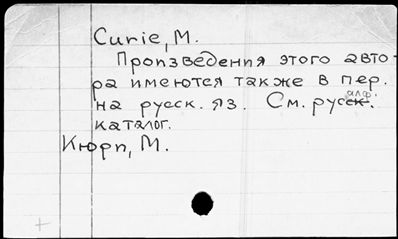 Curie, M.
Произведения этого авто-
ра имеются также в пер.
на русск. яз. См. русск. алф.
каталог.
Кюри, М.